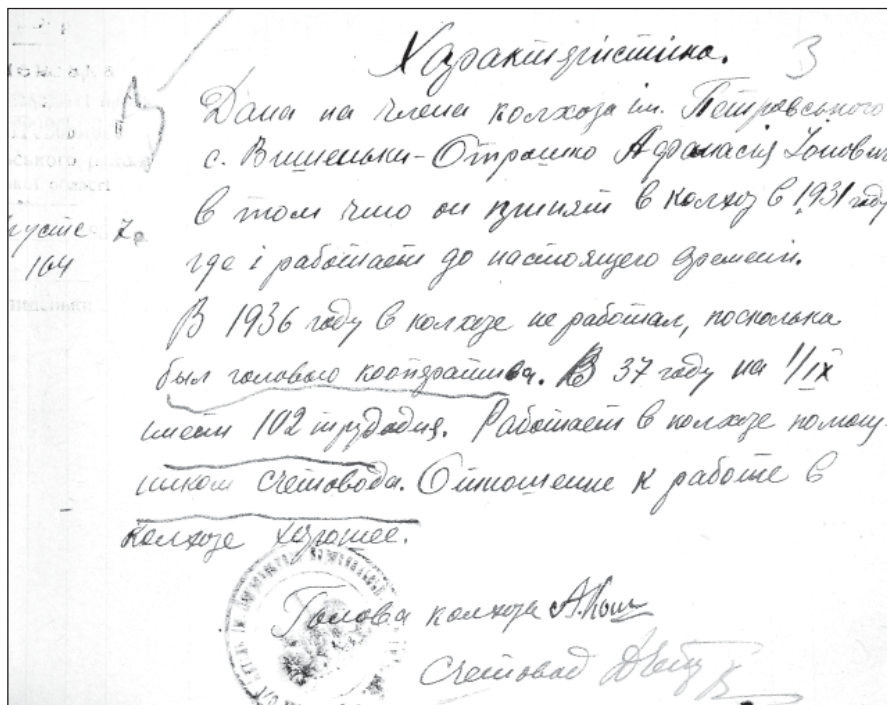 Характеристика. 3
Дана на члена колхоза ім. Петровського
с. Вишеньки - Отрошко Афанасія Іонович
в том что он принят в колхоз в 1931 году
где і работает до настоящего времени.
В 1936 году в колхозе не работал, поскольку
был головою кооператива. В 37 году на 1/IX
имеет 102 трудодня. Работает в колхозе помощ-
ником счетовода. Отношение к работе в
колхозе хорошее.
Голова колхоза А.
Счетовод
густе
164